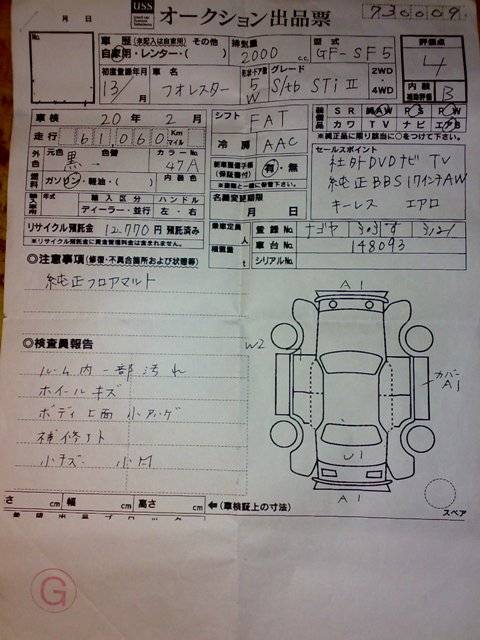 月 日
USS オークション出品票 730009
車歴 (未記入は自家用) その他
自家用・レンタカー・( )
排気量 2000 c.c.
型式 GF-SF5
評価点 4
初度登録年月 13/ 月
車名 フォレスター
形状・ドア数 5 W
グレード S/tb STi II
2WD
4WD
内装 補助評価 B
車検 20年 2月
シフト FAT
装備品 SR 純AW PS PW
カワ TV ナビ エアB
※純正品に限り該当に○をつけて下さい。
走行 61060 Km マイル
冷房 AAC
セールスポイント
社外DVDナビ TV
純正BBS 17インチAW
キーレス エアロ
外色 元色 黒 色替 カラーNo. 47A
新車整備手帳 (保証書付) 有・無
燃料 ガソリン・軽油・( ) 内装色
輸入車用 輸入区分 ハンドル
ディーラー・並行 左・右
名義変更期限
月 日
リサイクル預託金 12,770円 預託済み
※リサイクル預託金に資金管理料金は含まれません。
乗車定員 人
積載量 t
登録No. ナゴヤ
車台No. 148093
シリアルNo.
◎注意事項 (修復・不具合箇所および状態等)
純正フロアマット
◎検査員報告
ルーム内一部汚れ
ホイールキズ
ボディ上面小
補修
小キズ 小凹
A1
W2
カバー A1
U1
A1
さ cm 幅 cm 高さ cm ←(車検証上の寸法)
スペア
G